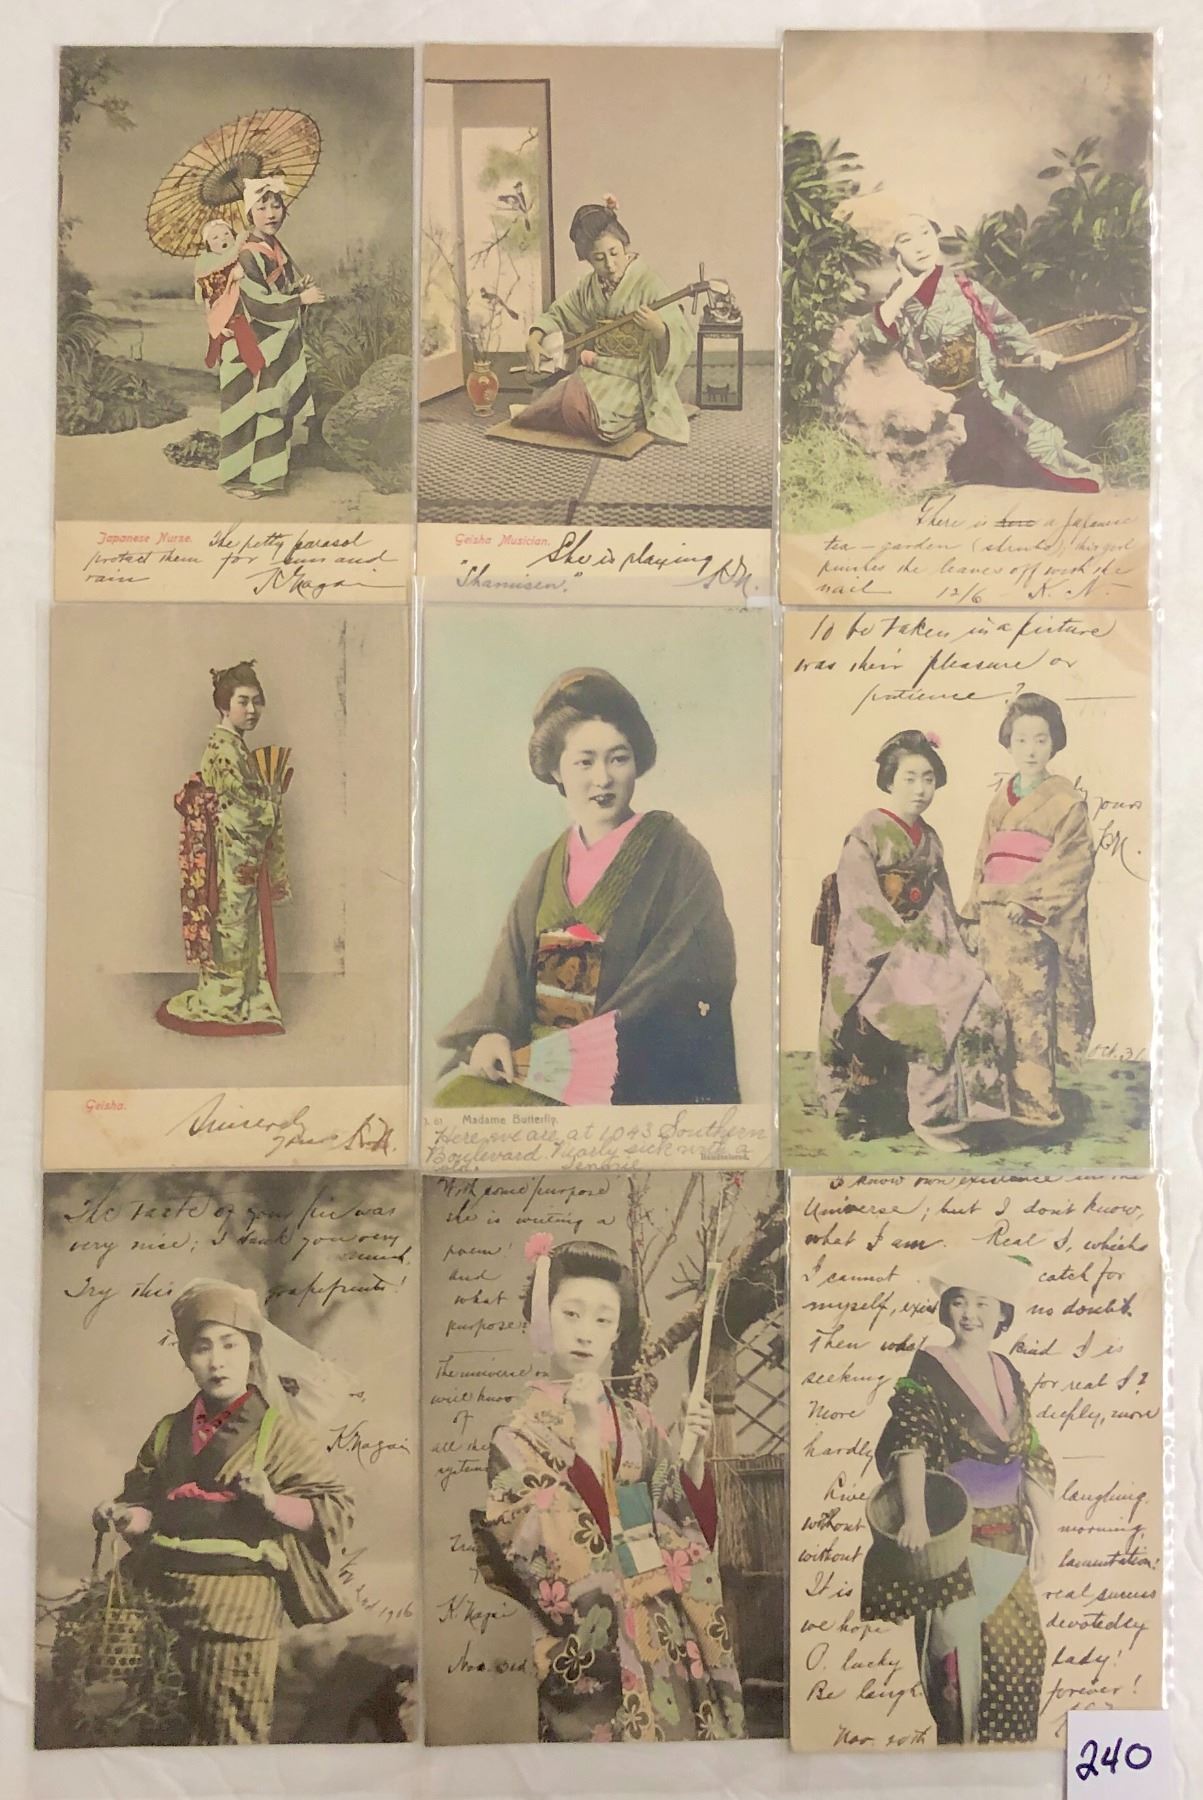 Japanese Nurse. The petty parasol
protect them for suns and
rain K. Nagai
Geisha Musician. She is playing
"Shamisen." K.N.
There is here a Japanese
tea-garden (shrubs), this girl
punches the leaves off with the
nail 12/6 K. N.
Geisha.
Sincerely
yours K.N.
Madame Butterfly.
Here we are at 1043 Southern
Boulevard. Nearly sick with a
cold.
To be taken in a picture
was their pleasure or
patience?
yours
K.N.
Oct. 31
The taste of your pie was
very nice; I thank you very
much.
Try this grapefruits!
K. Nagai
1906
With some purpose
she is writing a
poem!
and
what
purpose?
The universe
will know
of
all the
system
K. Nagai
Nov. 3rd
I know own existence in the
Universe; but I don't know,
what I am. Real I, which
I cannot catch for
myself, exist no doubt.
Then what kind I is
seeking for real I?
More deeply, more
hardly
Live laughing,
without morning,
without lamentation!
It is real
we hope devotedly
O. lucky Lady!
Be laugh forever!
Nov. 20th
240